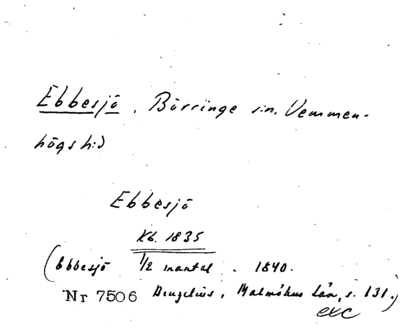 Ebbesjö, Börringe s:n, Vemmen-
högs h:d
Ebbesjö
Kb. 1835
(Ebbesjö 1/2 mantal. 1840.
Nr 7506 Bengelius, Malmöhus län, s. 131.)